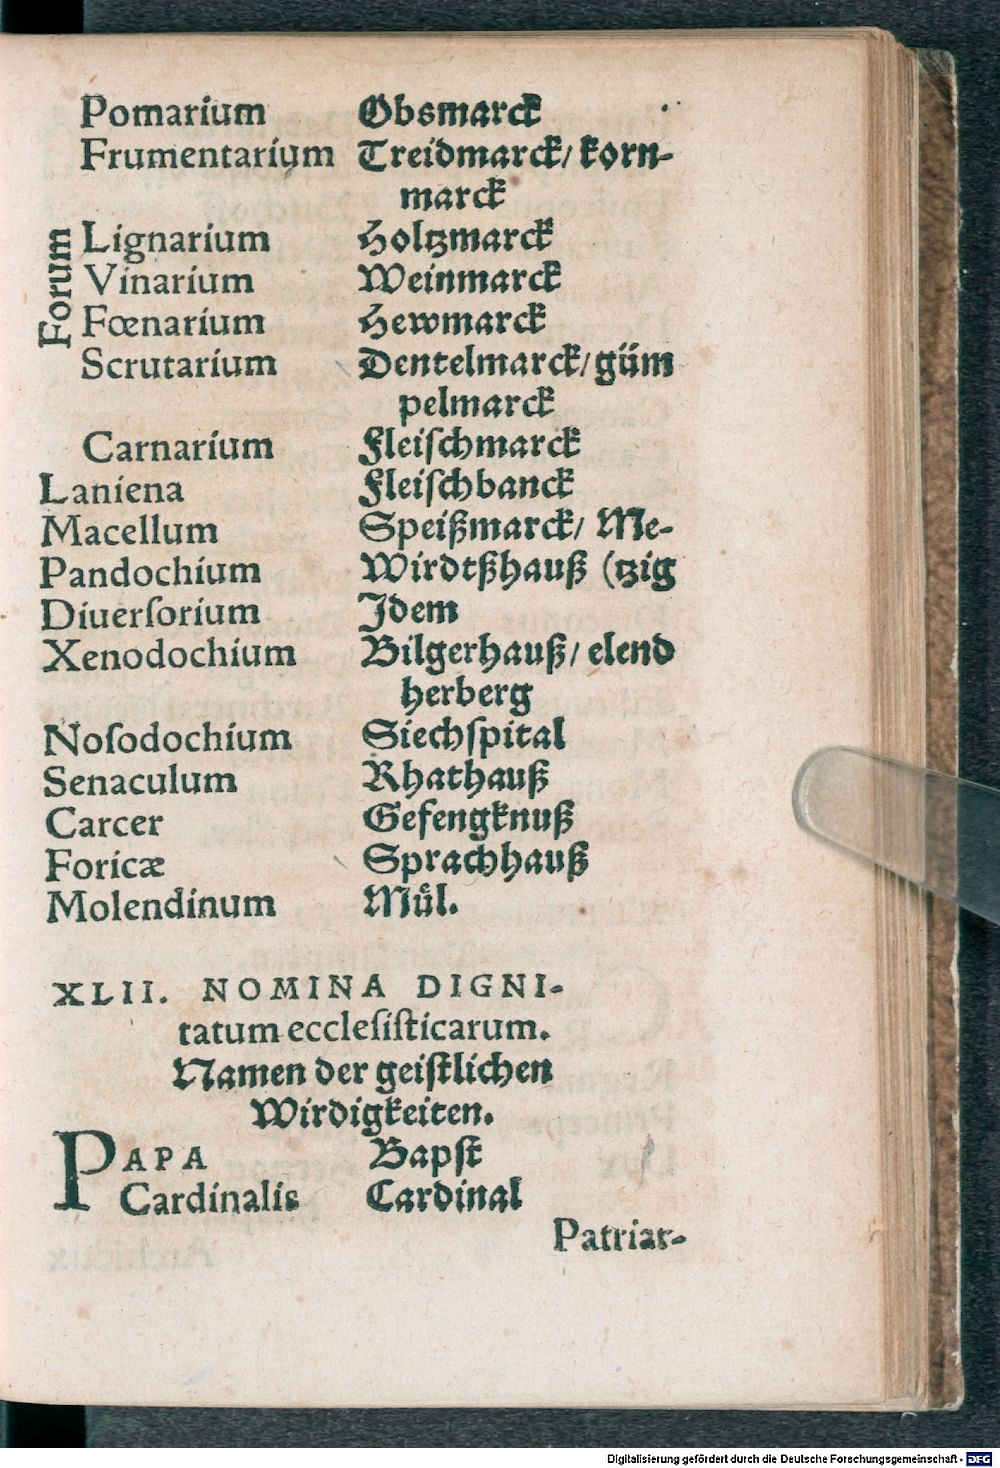 Pomarium Obsmarck
Frumentarium Treidmarck/ korn-
marck
Forum
Lignarium Holtzmarck
Vinarium Weinmarck
Fœnarium Hewmarck
Scrutarium Dentelmarck/ güm
pelmarck
Carnarium Fleiſchmarck
Laniena Fleiſchbanck
Macellum Speißmarck/ Me-
Pandochium Wirdtßhauß (tzig
Diuerſorium Idem
Xenodochium Bilgerhauß/ elend
herberg
Noſodochium Siechſpital
Senaculum Rhathauß
Carcer Gefengknuß
Foricæ Sprachhauß
Molendinum Muͤl.
XLII. NOMINA DIGNI-
tatum eccleſiſticarum.
Namen der geiſtlichen
Wirdigkeiten.
PAPA Bapſt
Cardinalis Cardinal
Patriar-
Digitalisierung gefördert durch die Deutsche Forschungsgemeinschaft - DFG